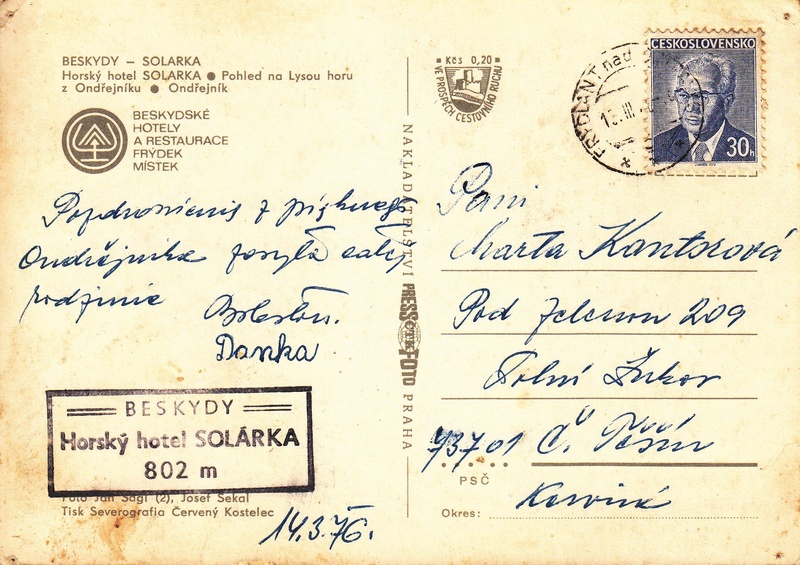 BESKYDY – SOLARKA
Horský hotel SOLARKA ● Pohled na Lysou horu
z Ondřejníku ● Ondřejník
BESKYDSKÉ
HOTELY
A RESTAURACE
FRÝDEK
MÍSTEK
Pozdrowienis z pięknego
Ondřejnika posyła całej
rodzinie
Danka
BESKYDY
Horský hotel SOLÁRKA
802 m
Foto Jan Ságl (2), Josef Sekal
Tisk Severografia Červený Kostelec
14.3.76.
NAKLADATELSTVÍ PRESSFOTO PRAHA
ČTK
Kčs 0,20
VE PROSPĚCH CESTOVNÍHO RUCHU
FRÝDLANT nad
ČESKOSLOVENSKO
30h
Pani
Marta Kantorová
Pod Jelenon 209
Dolní Žukov
73701 Č. Těšín
PSČ
Okres: Karviná